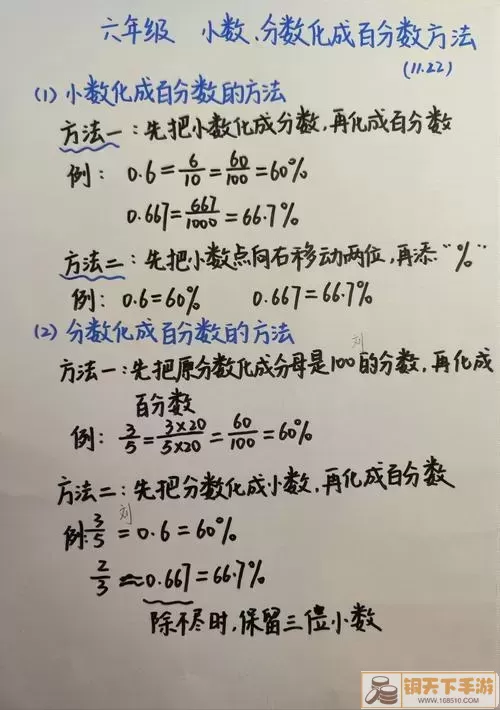 六年级 小数、分数化成百分数方法
(11.22)
(1) 小数化成百分数的方法
方法一:先把小数化成分数,再化成百分数
例: 0.6=6/10=60/100=60%
0.667=667/1000=66.7%
方法二:先把小数点向右移动两位,再添"%"
例: 0.6=60% 0.667=66.7%
(2) 分数化成百分数的方法
刘
方法一:先把原分数化成分母是100的分数,再化成
百分数
例: 3/5=3×20/5×20=60/100=60%
方法二:先把分数化成小数,再化成百分数
刘
例:3/5=0.6=60%
2/3≈0.667=66.7%
除不尽时,保留三位小数
铜天下手游
www.168510.com